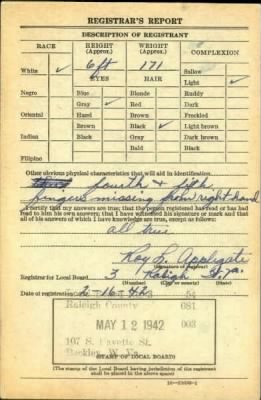 REGISTRAR'S REPORT
DESCRIPTION OF REGISTRANT
RACE HEIGHT (Approx.) WEIGHT (Approx.) COMPLEXION
White ✓ 6 ft 171 Sallow
EYES HAIR Light ✓
Negro Blue Blonde Ruddy
Gray ✓ Red Dark
Oriental Hazel Brown Freckled
Brown Black ✓ Light brown
Indian Black Gray Dark brown
Bald Black
Filipino
Other obvious physical characteristics that will aid in identification
fourth & fifth
fingers missing from right hand
I certify that my answers are true; that the person registered has read or has had
read to him his own answers; that I have witnessed his signature or mark and that
all of his answers of which I have knowledge are true, except as follows:
all true
Roy L. Applegate
(Signature of registrar)
Registrar for Local Board 3 Raleigh W. Va.
(Number) (City or county) (State)
Date of registration 2-16-42
Raleigh County 081
MAY 12 1942 003
107 S. Fayette St.
Beckley, W. Va.
(STAMP OF LOCAL BOARD)
(The stamp of the Local Board having jurisdiction of the registrant
shall be placed in the above space)